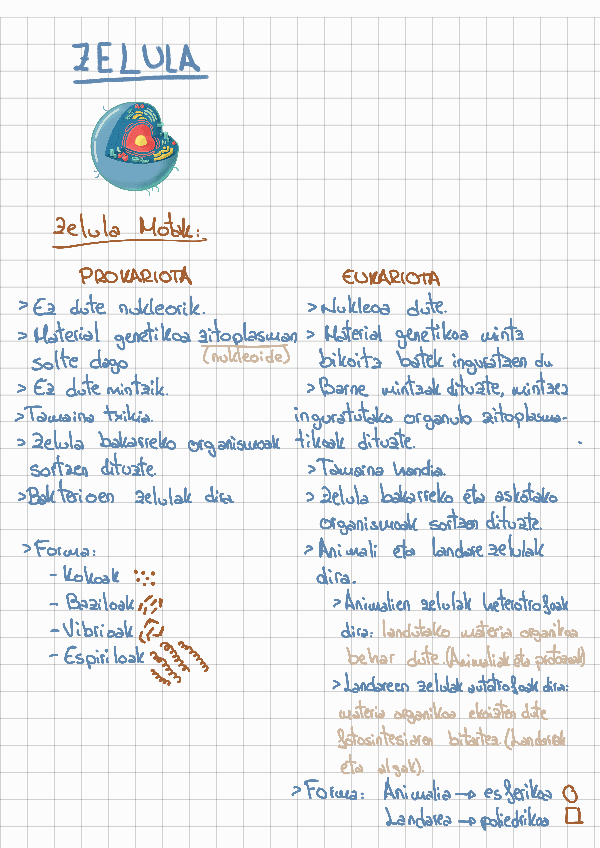 ZELULA
Zelula Motak:
PROKARIOTA
> Ez dute nukleorik.
> Material genetikoa zitoplasman
(nukleoide)
solte dago
> Ez dute mintzik.
> Tamaina txikia.
> Zelula bakarreko organismoak
sortzen dituzte.
> Bakterioen zelulak dira
> Forma:
- Kokoak
- Baziloak
- Vibrioak
- Espiriloak
EUKARIOTA
> Nukleoa dute.
> Material genetikoa mintz
bikoitz batek inguratzen du
> Barne mintzak dituzte, mintzez
inguratutako organulo zitoplasma-
tikoak dituzte.
> Tamaina handia.
> Zelula bakarreko eta askotako
organismoak sortzen dituzte.
> Animali eta landare zelulak
dira.
> Animalien zelulak heterotrofoak
dira: landutako materia organikoa
behar dute. (Animaliak eta protozoak)
> Landareen zelulak autotrofoak dira:
materia organikoa ekoizten dute
fotosintesiaren bitartez. (Landareak
eta algak).
> Forma: Animalia → esferikoa
Landarea → poliedrikoa